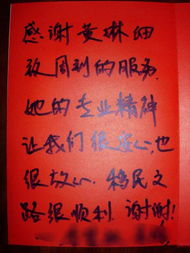 感谢黄琳细
致周到的服务.
她的专业精神
让我们很安心,也
很放心. 移民之
路很顺利. 谢谢!